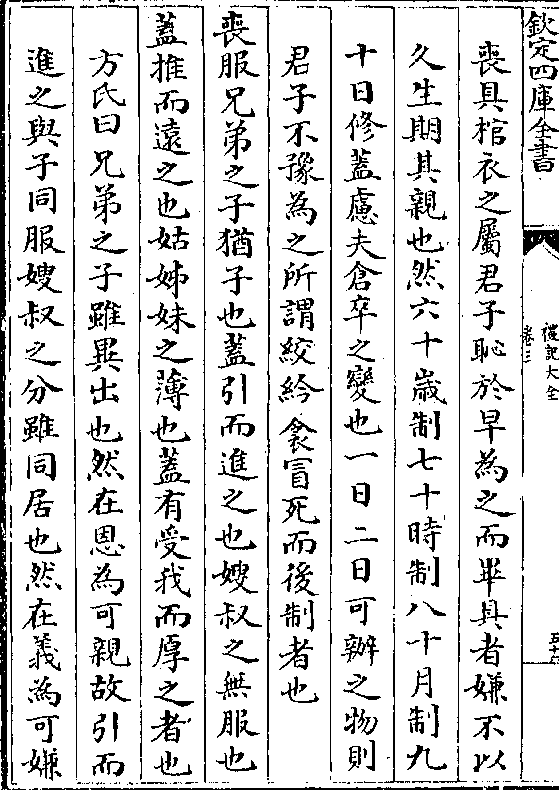 欽定四庫全書
禮記大全
卷三
喪具棺衣之屬君子恥於早為之而畢具者嫌不以
久生期其親也然六十歲制七十時制八十月制九
十日修蓋慮夫倉卒之變也一日二日可辦之物則
君子不豫為之所謂絞紟衾冒死而後制者也
喪服兄弟之子猶子也蓋引而進之也嫂叔之無服也
蓋推而遠之也姑姊妹之薄也蓋有受我而厚之者也
方氏曰兄弟之子雖異出也然在恩為可親故引而
進之與子同服嫂叔之分雖同居也然在義為可嫌